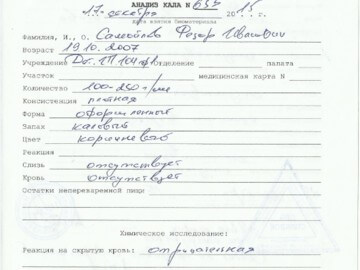 АНАЛИЗ КАЛА N 653
17 декабря 2015 г.
дата взятия биоматериала
Фамилия, И., О.
Возраст 19.10.2007
Учреждение отделение палата
Участок медицинская карта N
Количество 100-250
Консистенция плотная
Форма оформленный
Запах каловый
Цвет коричневый
Реакция
Слизь отсутствует
Кровь отсутствует
Остатки непереваренной пищи
Химическое исследование:
Реакция на скрытую кровь: отрицательная